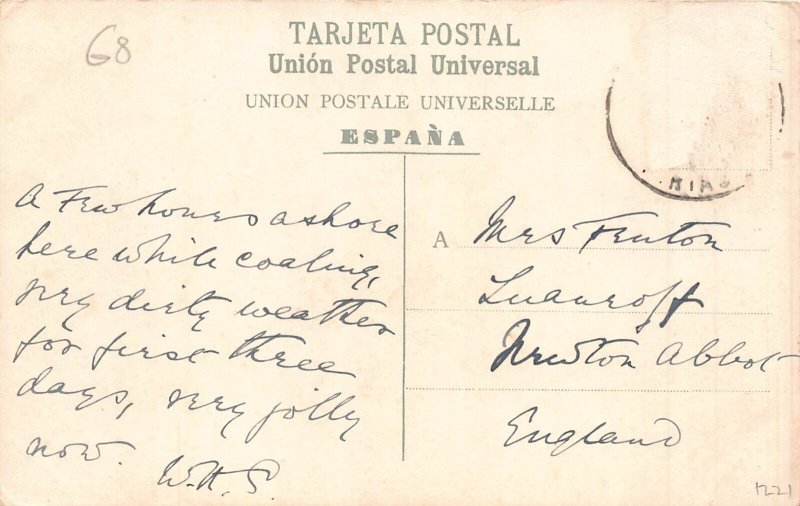 68
TARJETA POSTAL
Unión Postal Universal
UNION POSTALE UNIVERSELLE
ESPAÑA
A few hours ashore
here while coaling,
very dirty weather
for first three
days, very jolly
now. W.H.S.
A Mrs Fenton
Newton Abbot
England
1221